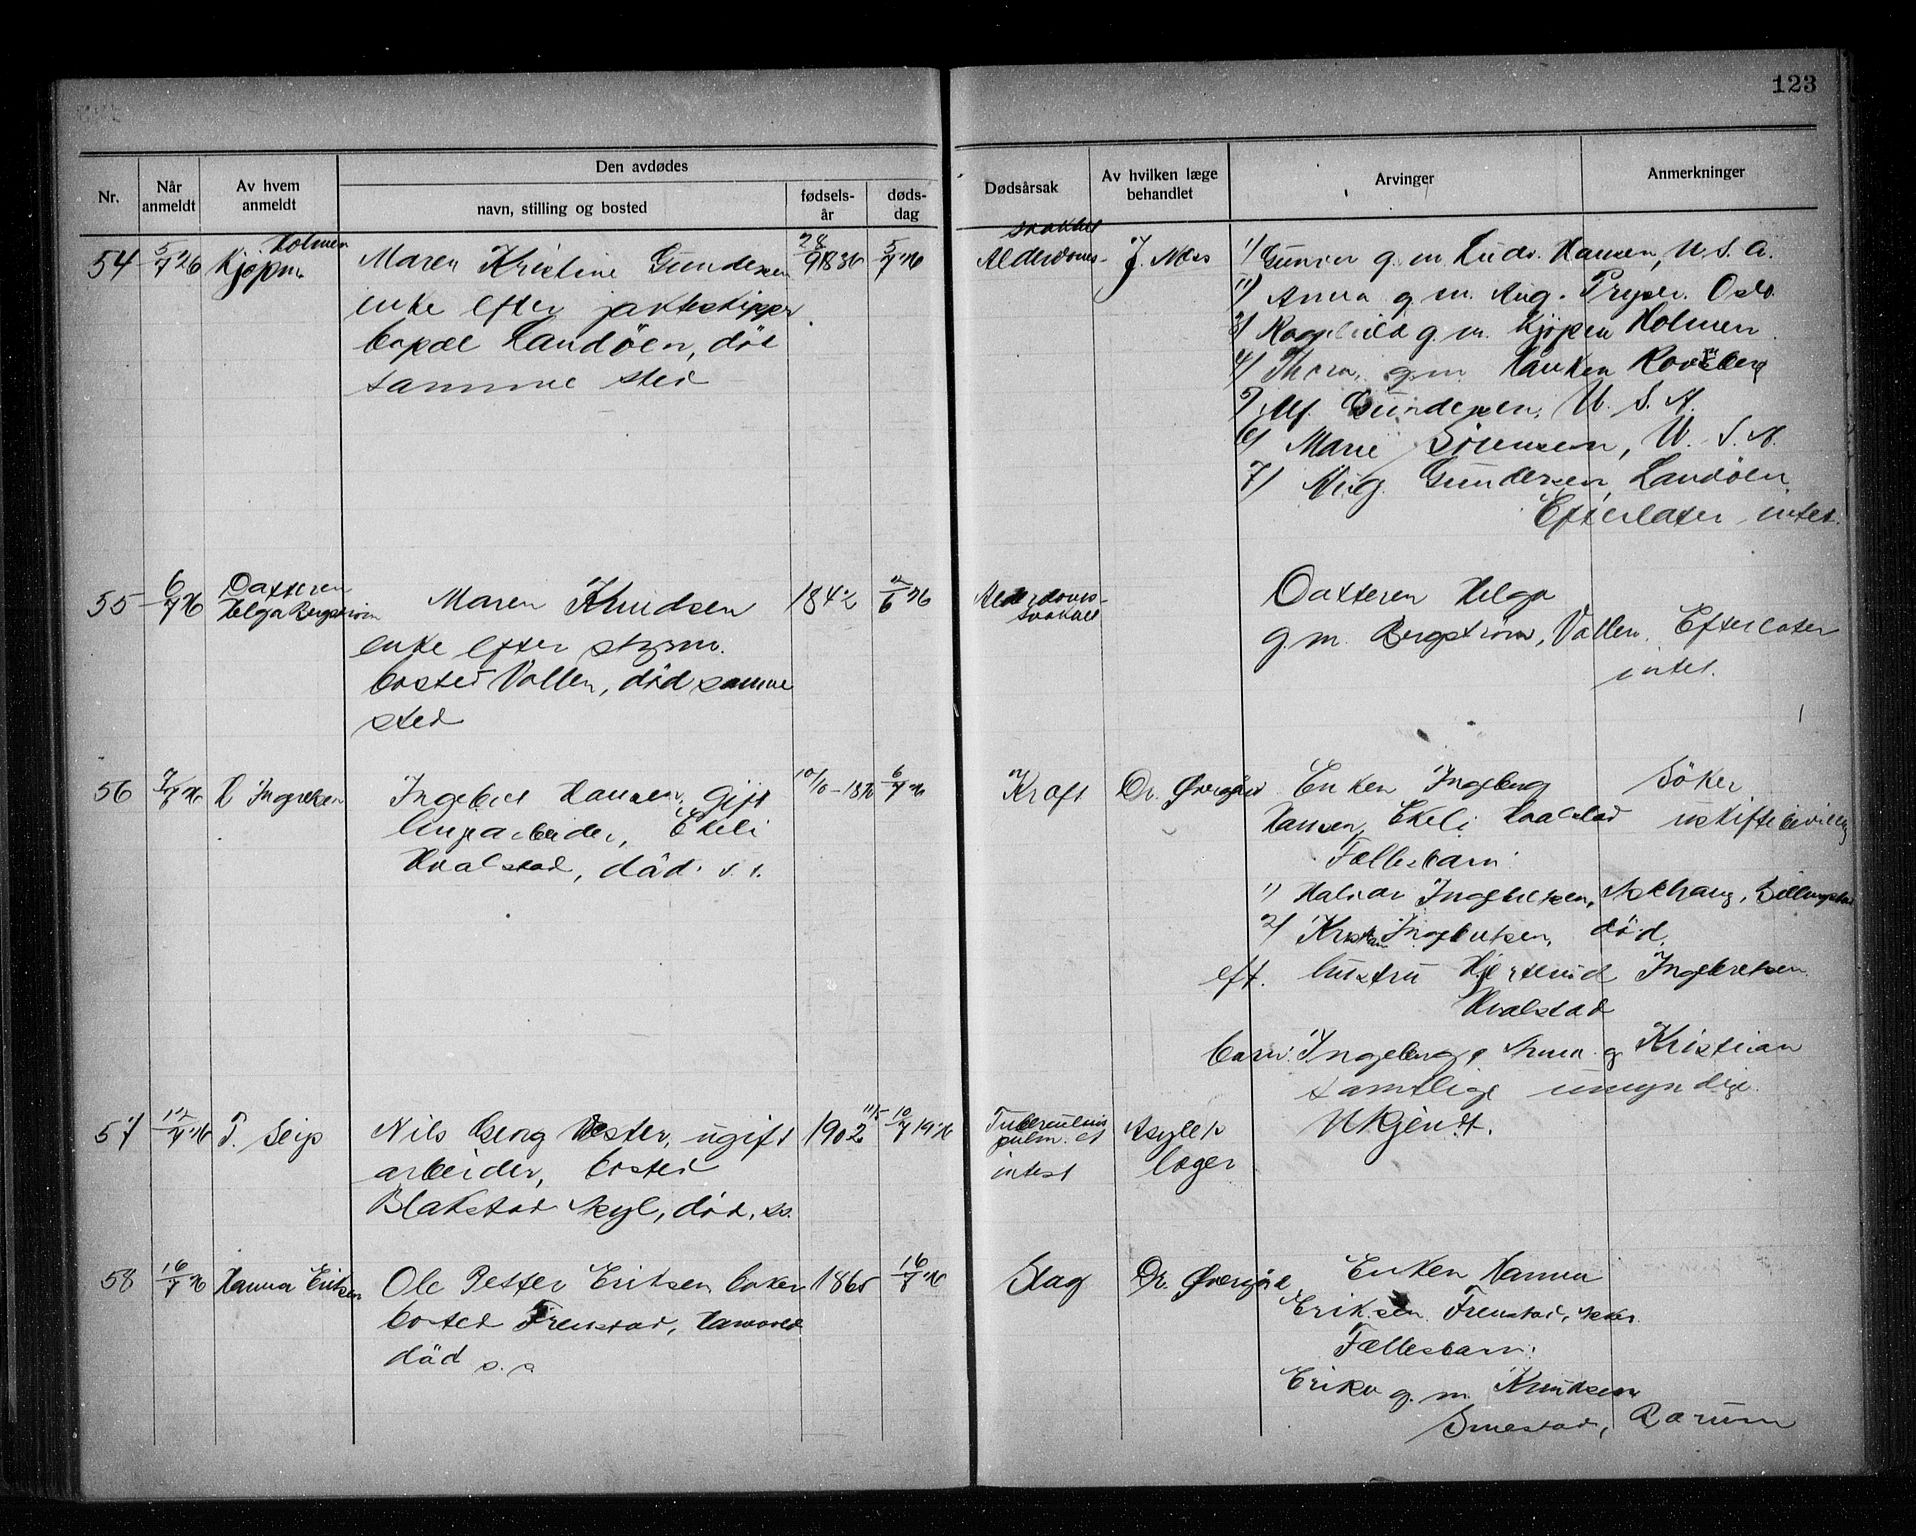 123
Nr.
Når anmeldt
Av hvem anmeldt
Den avdødes
navn, stilling og bosted
fødsels-år
døds-dag
Dødsårsak
Av hvilken læge behandlet
Arvinger
Anmerkninger
54
5/7 26
Kjøpm Holmen
Maren Kristine Gundersen
enke efter jakteskipper
bopæl Landøen, død
samme sted
28/9 1836
5/7 26
Alderdoms-
svakhet
J. Moss
1) Gunvor g. m. Ludv. Hansen, U. S. A.
2) Anna g. m. Aug. Pryser. Oslo
3) Ragnhild g. m. Kjøpm Holmen
4) Thora, g. m. Hauken
5) Alf. Gundersen, U. S. A.
6) Marie Sörensen, U. S. A.
7) Aug. Gundersen, Landöen
Efterlater intet.
55
6/7 26
Datteren
Helga Bergström
Maren Knudsen
enke efter styrm.
bosted Vollen, död samme
sted
1842
6 26
Alderdoms-
svakhet
Datteren Helga
g. m. Bergström, Vollen. Efterlater
intet.
56
7/7 26
H Ingvretsen
Ingebret Hansen, gift
arbeider, Ekeli
Hvalstad, död s. s.
10/10 - 18
6/7 26
Kræft
Dr. Øvergård
Enken Ingeborg
Hansen, Ekeli Hvalstad
Söker
uskiftebevilling
Fællesbarn:
1) Halvar Ingebretsen, Billingstad
2) Kristian Ingebretsen, död,
eft. hustru Hjertrud Ingebretsen
Hvalstad
barn: Ingeborg, Anna og Kristian
samtlige umyndige.
57
12/7 26
T. Seip
Nils Georg Vester, ugift
arbeider, bosted
Blakstad Asyl, död, ss.
1902 11/5
10/7 1926
Tuberculosis
pulm. et
intest
Asylets
læger
Ukjendt.
58
16/7 26
Hanna Eriksen
Ole Petter Eriksen baker
bosted Frenstad,
död s. s
1865
16/7 26
Slag
Dr. Øvergård
Enken Hanna
Eriksen Frenstad, Asker.
Fællesbarn:
Erika g. m. Knudsen
Smestad, Bærum